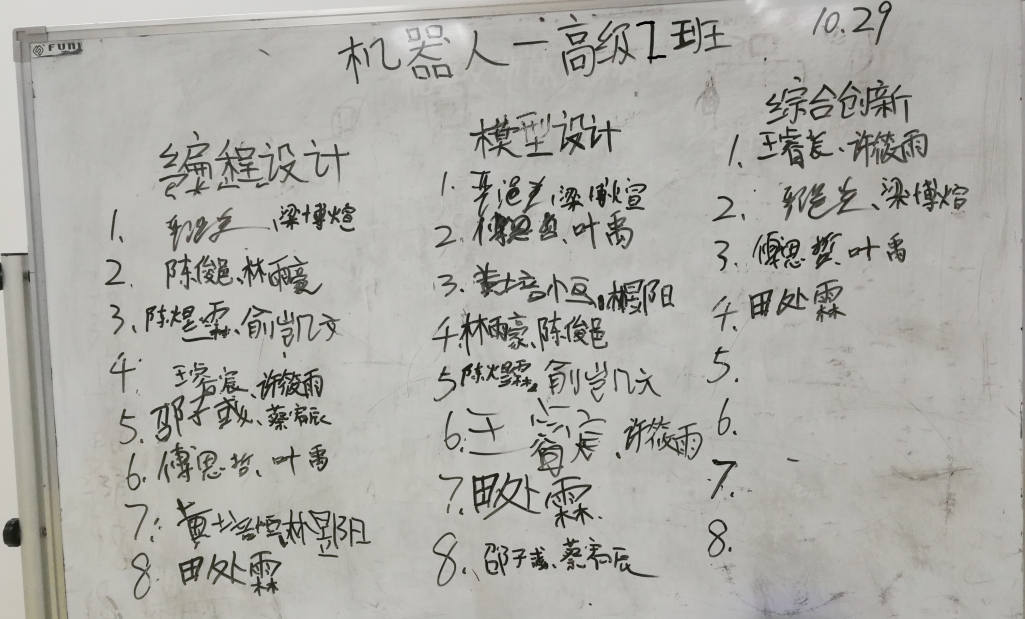 FUNJ
机器人一高级1班
10.29
编程设计
1. 、梁博煊
2. 陈俊邑、林雨豪
3、陈焜霖、俞岂凡文
4. 王睿宸、许筱雨
5. 邵子彧、蔡宥辰
6. 傅思哲、叶禹
7. 黄培恒、林昱阳
8 田处霖
模型设计
1. 、梁博煊
2. 傅思哲、叶禹
3. 黄培恒、林昱阳
4. 林雨豪、陈俊邑
5 陈焜霖、俞岂凡文
6. 王睿宸、许筱雨
7. 田处霖
8. 、邵子彧、蔡宥辰
综合创新
1. 王睿宸、许筱雨
2. 、梁博煊
3. 傅思哲、叶禹
4. 田处霖
5.
6.
7.
8.